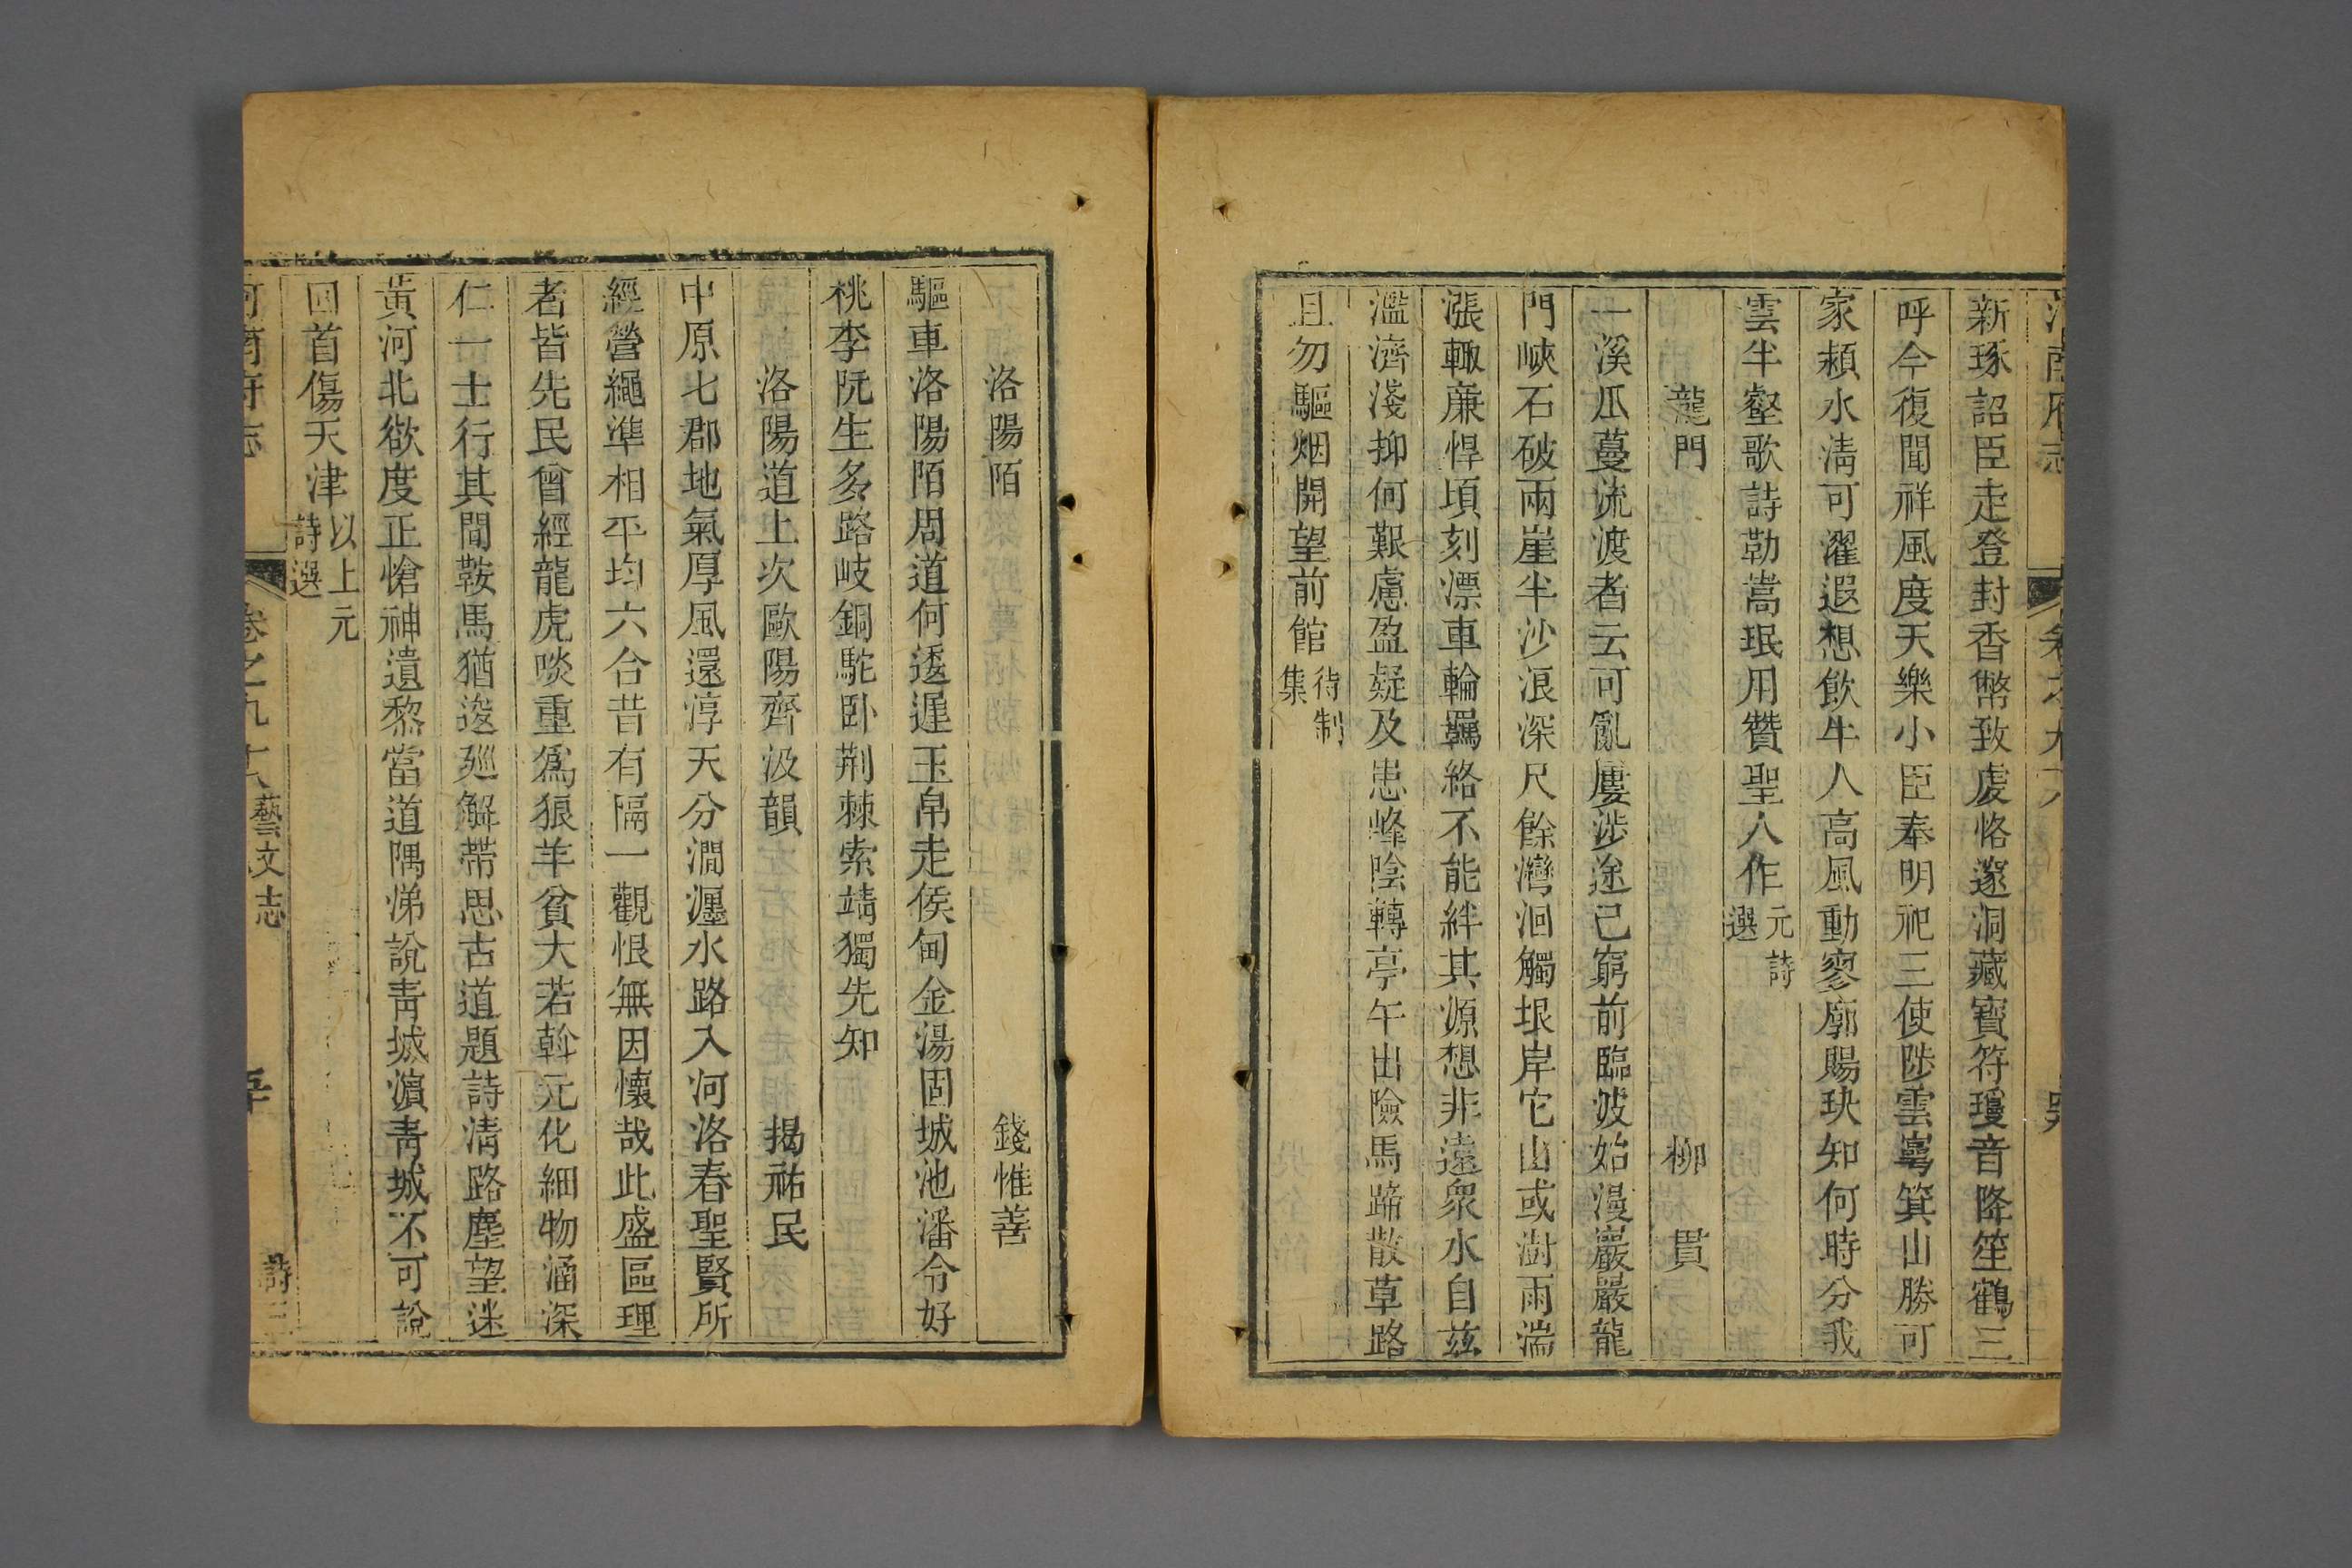 新琢詔臣走登封香幣致虔恪邃洞藏寶符瓊音降笙鶴三
呼今復聞祥風度天樂小臣奉明祀三使陟雲嶠箕山勝可
家潁水清可濯遐想飲牛人高風動寥廓賜玦知何時分我
雲半壑歌詩勒嵩珉用贊聖人作元詩選
龍門 柳貫
一溪瓜蔓流渡者云可亂屢涉途已窮前臨波始漫巖巖龍
門峽石破兩崖半沙浪深尺餘灣洄觸垠岸它山或澍雨湍
漲輒廉悍頃刻漂車輪羈絡不能絆其源想非遠衆水自兹
濫濟淺抑何艱慮盈疑及患峰陰轉亭午出險馬蹄散草路
且勿驅烟開望前館待制集
洛陽陌 錢惟善
驅車洛陽陌周道何逶遲玉帛走侯甸金湯固城池潘令好
桃李阮生多路岐銅駝卧荆棘索靖獨先知
洛陽道上次歐陽齊汲韻 揭祐民
中原七郡地氣厚風還淳天分澗瀍水路入河洛春聖賢所
經營繩準相平均六合昔有隔一觀恨無因懷哉此盛區理
者皆先民曾經龍虎啖重爲狼羊貧大若斡元化細物涵深
仁一士行其間鞍馬猶逡廵解帶思古道題詩清路塵望迷
黃河北欲度正愴神遺黎當道隅涕說靑城濵靑城不可說
回首傷天津以上元詩選
河南府志 卷之九十八藝文志 詩三